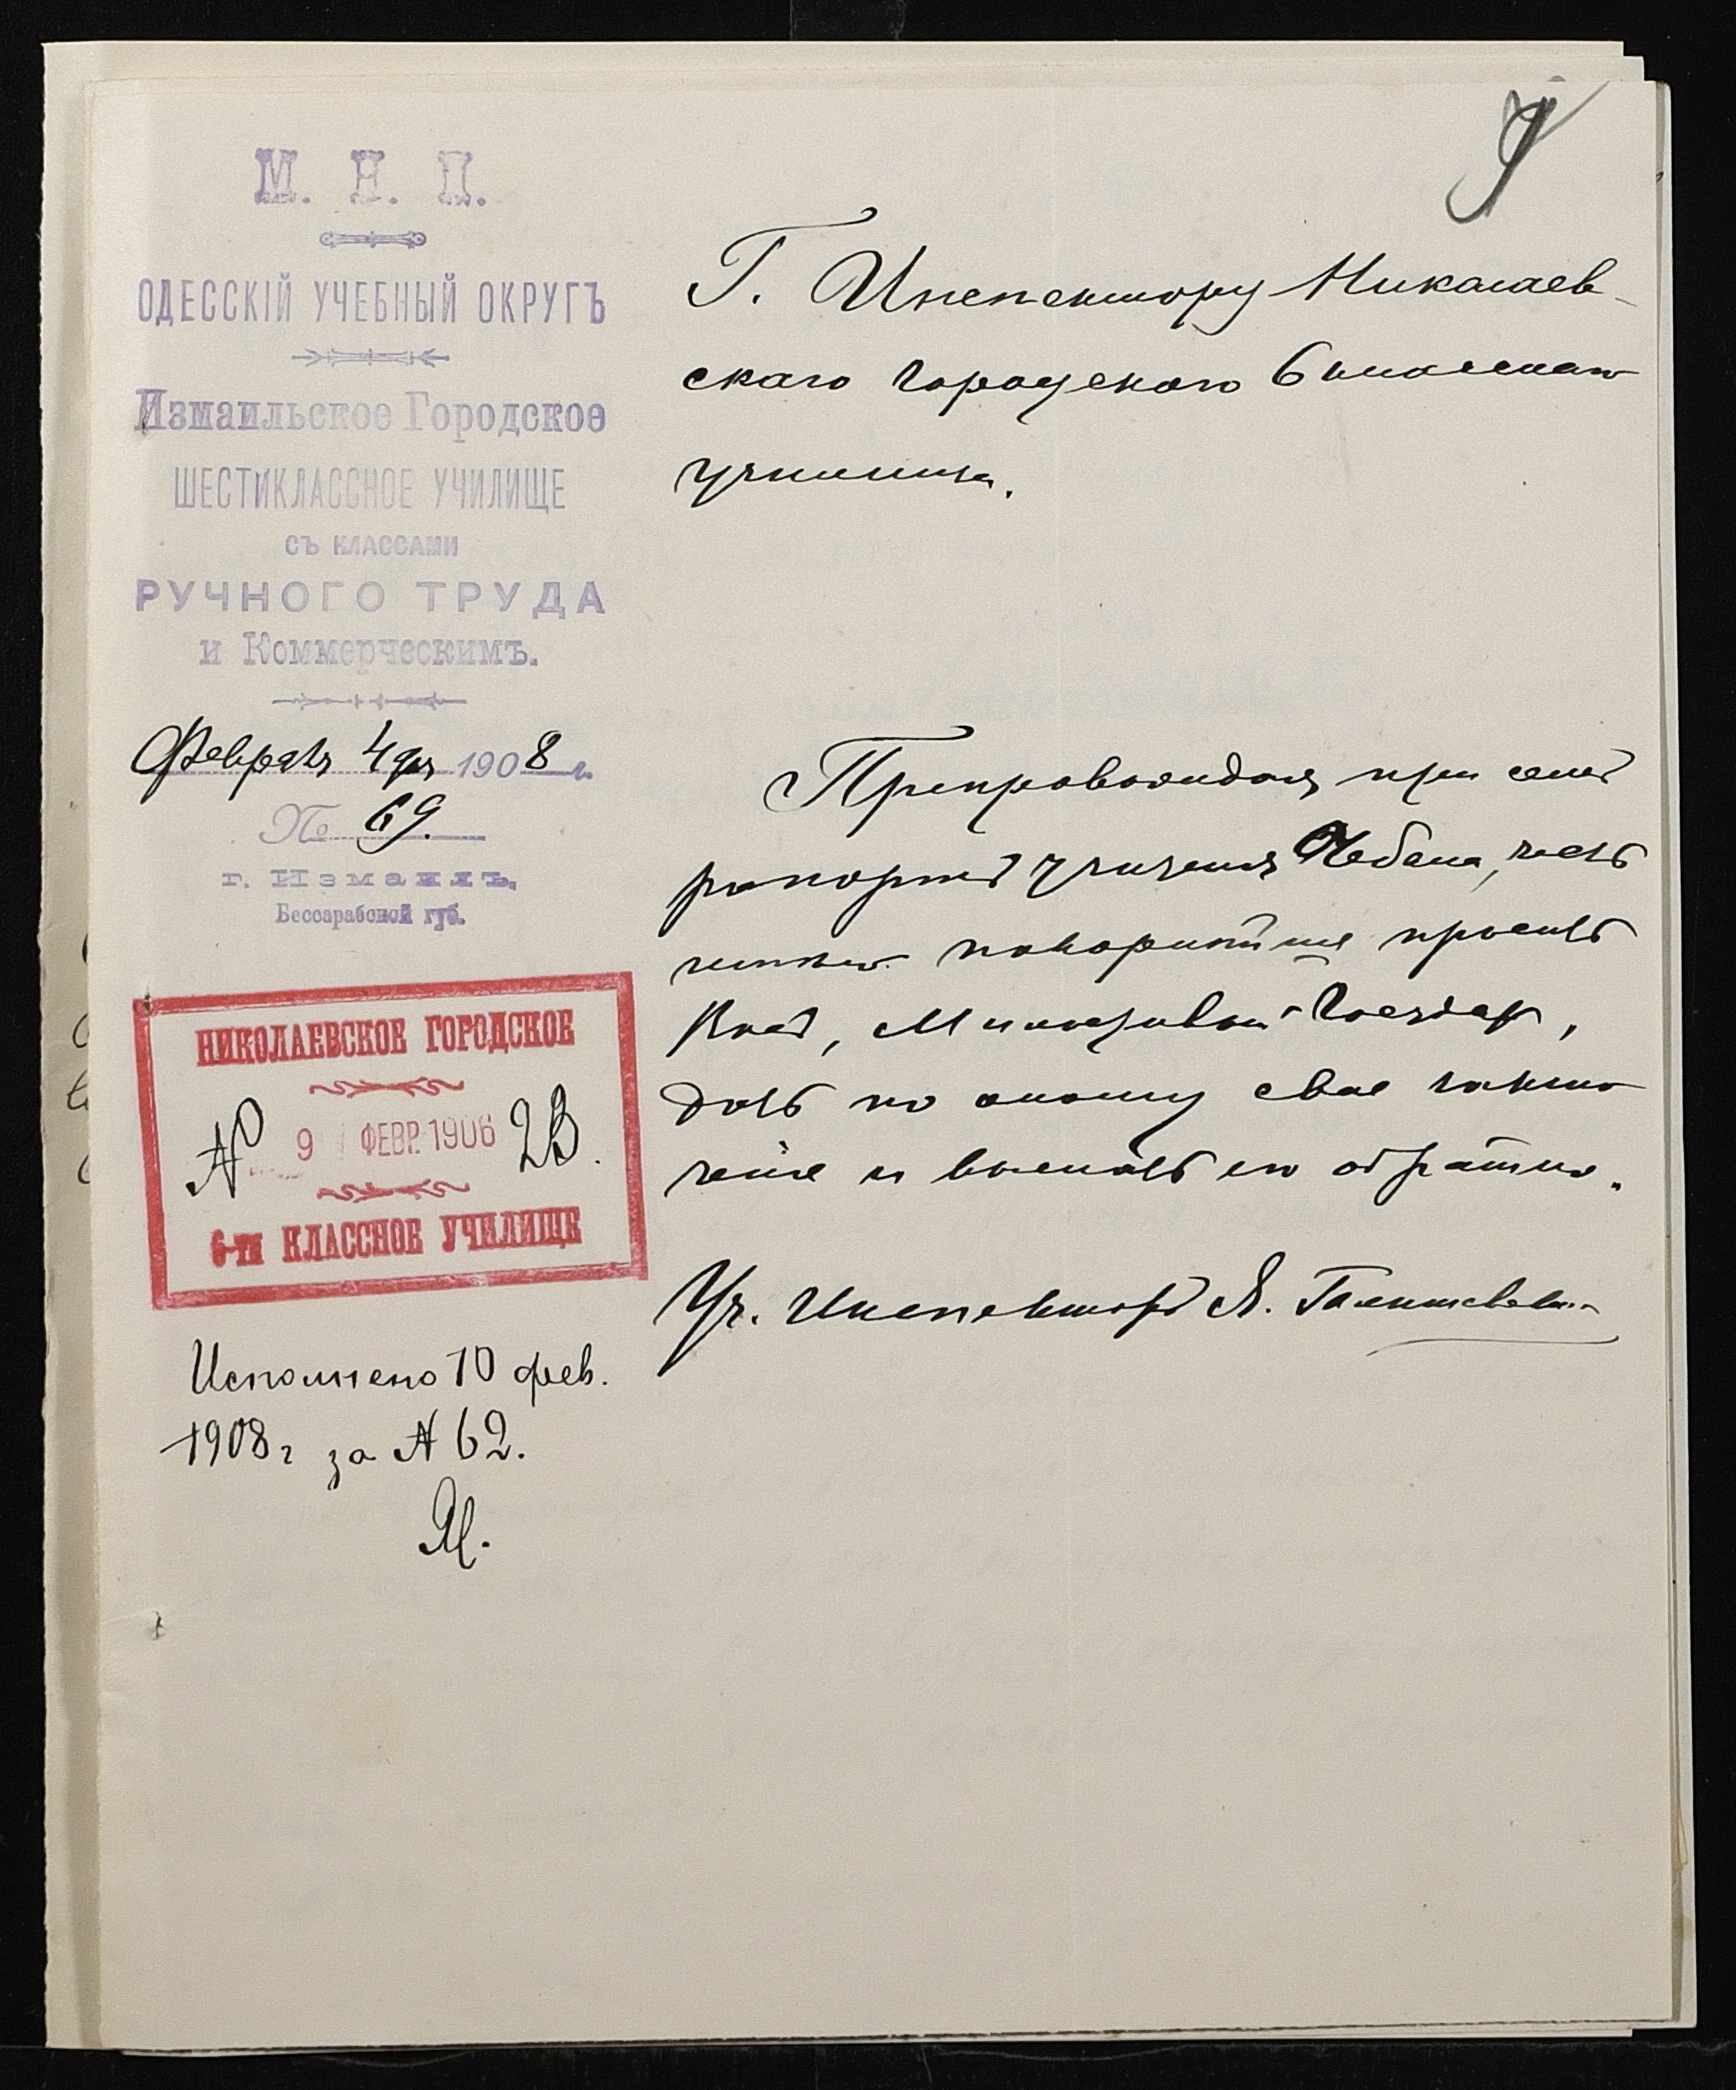 9
М. Н. П.
ОДЕССКІЙ УЧЕБНЫЙ ОКРУГЪ
Измаильское Городское
ШЕСТИКЛАССНОЕ УЧИЛИЩЕ
СЪ КЛАССАМИ
РУЧНОГО ТРУДА
и Коммерческимъ.
Февраля 4 дня 1908 г.
№ 69.
г. Измаилъ,
Бессарабской губ.
НИКОЛАЕВСКОЕ ГОРОДСКОЕ
№ 9 ФЕВР. 1906 23.
6-ти КЛАССНОЕ УЧИЛИЩЕ
Исполнено 10 фев.
1908 г за № 62.
Г. Инспектору Николаев-
скаго городского 6 классного
училища.
Препровождая при семъ
рапортъ учителя Чебана, честь
имѣю покорнѣйше просить
Васъ, Милостивый Государь,
дать по оному свое заклю
ченіе и выслать его обратно.
Уч. Инспекторъ Я.